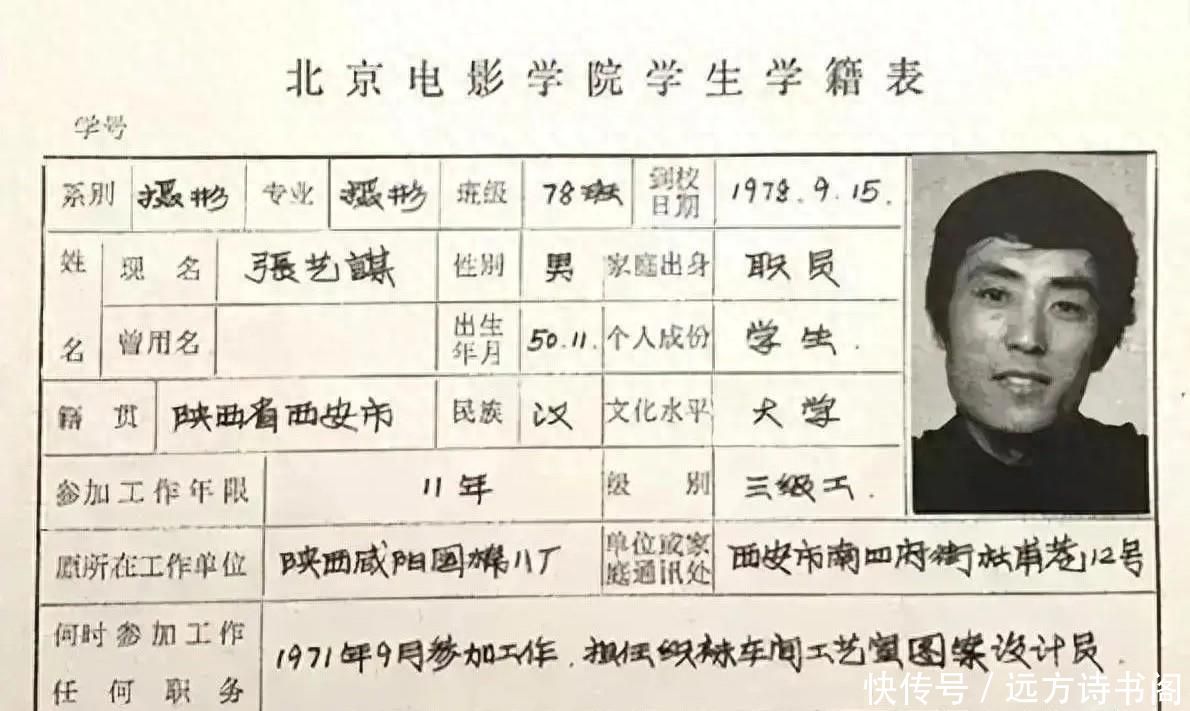 北京电影学院学生学籍表
学号
系别 摄影 专业 摄影 班级 78班 到校日期 1978.9.15.
姓名 现名 張艺謀 性别 男 家庭出身 职员
曾用名 出生年月 50.11. 个人成份 学生.
籍贯 陕西省西安市 民族 汉 文化水平 大学
参加工作年限 11年 级别 三级工.
原所在工作单位 陕西咸阳国棉八厂 单位或家庭通讯处 西安市南四府街杜甫巷112号
何时参加工作任何职务 1971年9月参加工作.担任织袜车间工艺室图案设计员.
快传号 / 远方诗书阁